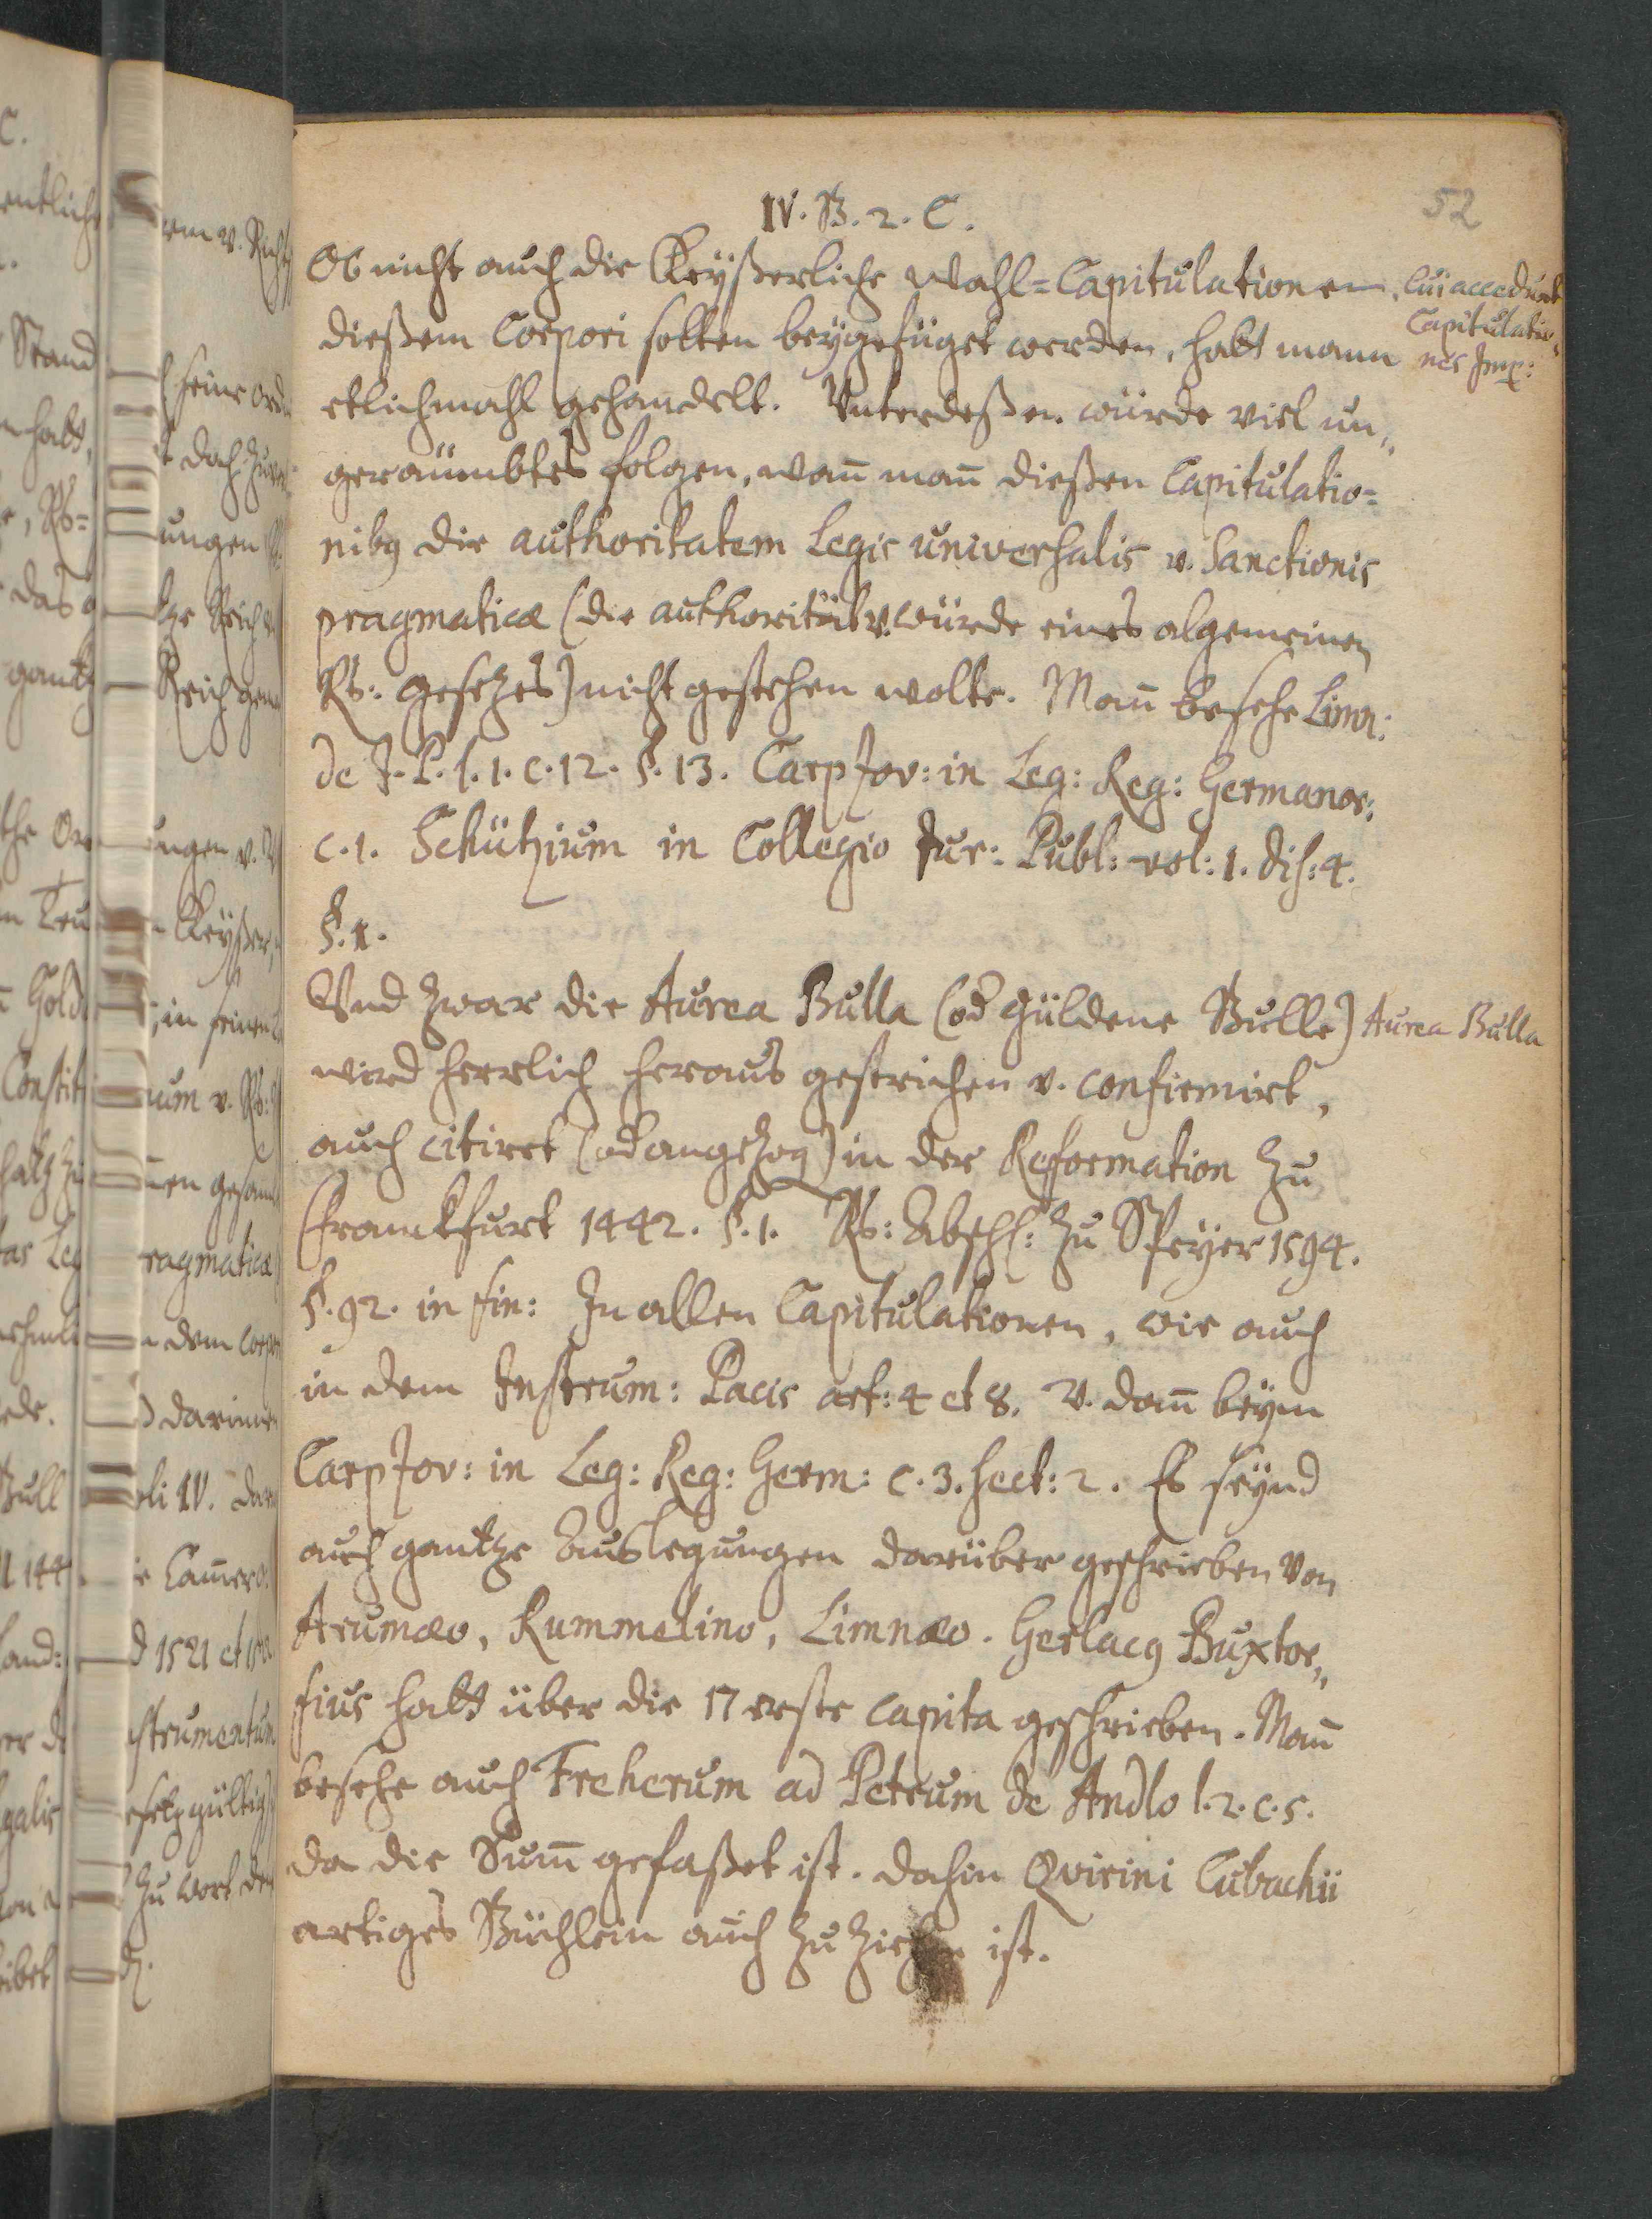 52
IV. B. 2. C.
Ob nicht auch die Keyßerliche Wahl=Capitulationen,
dießem Corpori solten beygefüget werden, hatt mann
etlichmahl gehandelt. Unterdeßen würde viel un„
geraümbtes folgen, wañ mañ dießen Capitulatio=
nibꝰ die authoritatem Legis universalis v. Sanctionis
pragmaticæ (die authorität v. würde eines algemeinen
Rs: gesetzes) nicht gestehen wolte. Mañ besehe Limn:
de J. P. l. 1. c. 12. §. 13. Carpzov: in Leg: Reg: Germanor:
c. 1. Schützium in Collegio Jur: Publ: vol: 1. dis: 4.
§. 1.
Und zwar die Aurea Bulla (od güldene Bulle)
wird herrlich heraus gestrichen v. confirmirt,
auch citiret (od angezog) in der Reformation zu
Franckfurt 1442. §. 1. Rs: Absch: zu Speyer 1594.
§. 92. in fin: In allen Capitulationen, wie auch
in dem Instrum: Pacis art: 4 et 8. v. dañ beym
Carpzov: in Leg: Reg: Germ: c. 3. sect: 2. Es seynd
auch gantze Auslegungen darüber geschrieben von
Arumæo, Rummelino, Limnæo. Gerlacꝰ Buxtor„
fius hatt über die 17 erste capita geschrieben. Mañ
besehe auch Freherum ad Petrum de Andlo l. 2. c. 5.
da die Sum̃ gefaßet ist. dahin Qvirini Cubachii
artiges Büchlein auch zu ziehen ist.
Cui accedunt
Capitulatio„
nes Imp:
Aurea Bulla